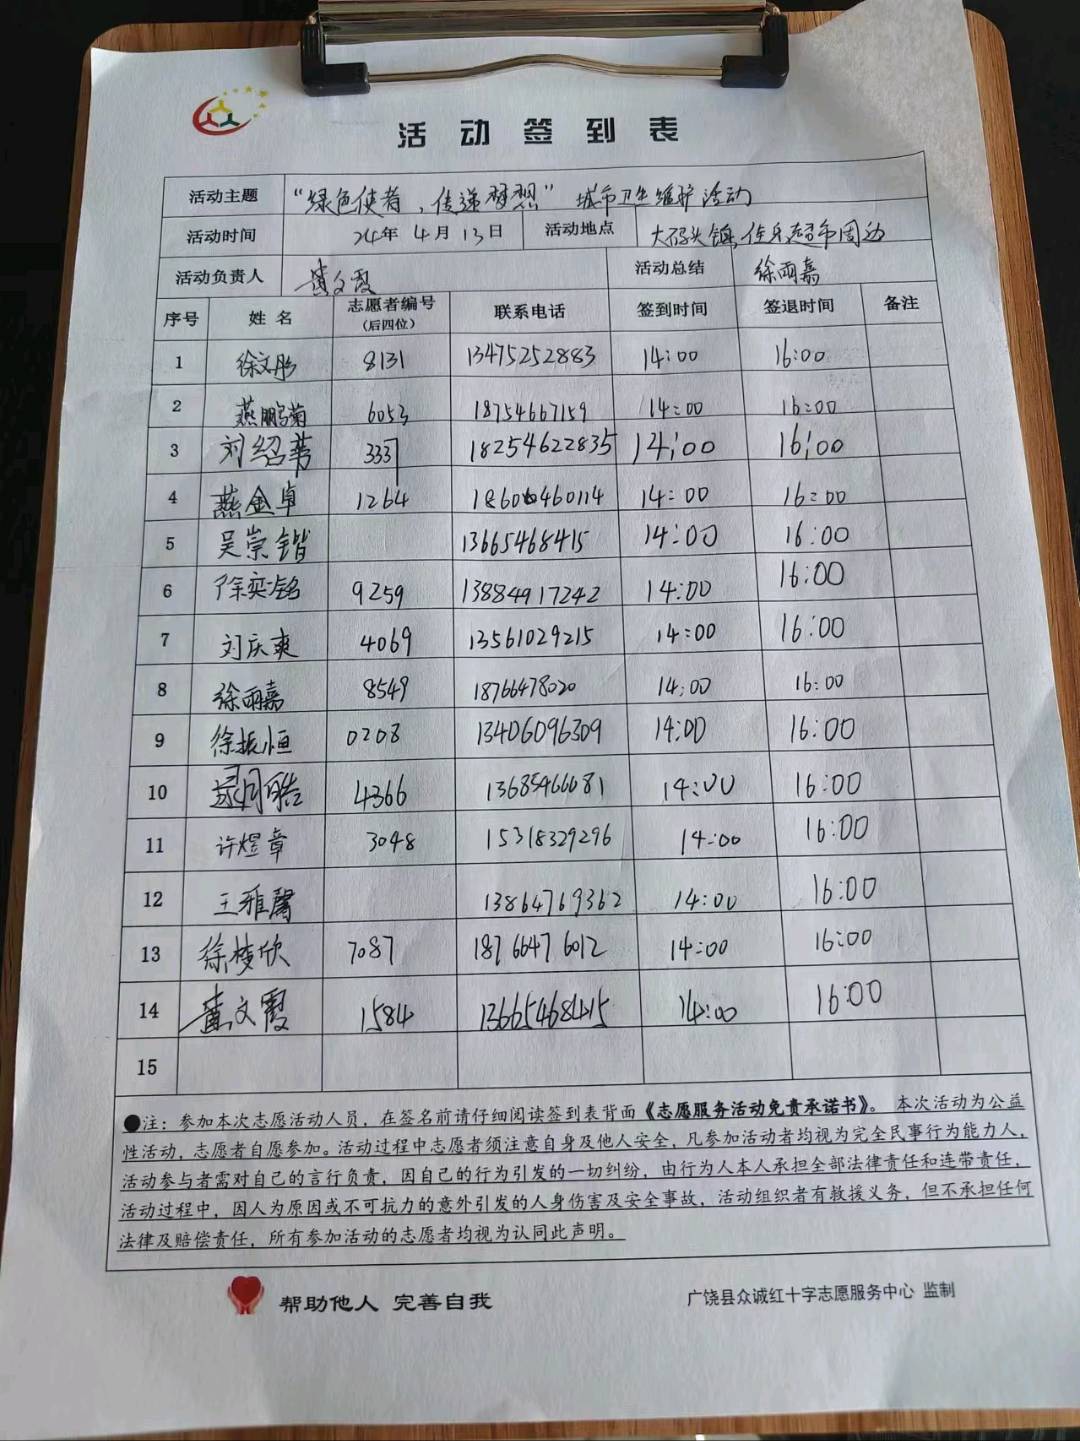 活动签到表
活动主题 “绿色使者，传递梦想”城市卫生维护活动
活动时间 24年4月13日 活动地点 大码头镇,佳乐超市周边
活动负责人 黄文霞 活动总结 徐雨嘉
序号 姓名 志愿者编号（后四位） 联系电话 签到时间 签退时间 备注
1 徐文彤 8131 13475252883 14:00 16:00
2 燕鹏菊 6053 18754667159 14:00 16:00
3 刘绍苇 3337 18254622835 14:00 16:00
4 燕金卓 1264 14:00 16:00
5 吴崇锴 13665468415 14:00 16:00
6 徐奕铭 9259 13884917242 14:00 16:00
7 刘庆爽 4069 13561029215 14:00 16:00
8 徐雨嘉 8549 18766478020 14:00 16:00
9 徐振恒 0208 13406096309 14:00 16:00
10 4366 13685466681 14:00 16:00
11 许煜章 3048 15318329296 14:00 16:00
12 王雅馨 13864769362 14:00 16:00
13 徐梭欣 7087 18766476012 14:00 16:00
14 黄文霞 1584 13665468415 14:00 16:00
15
●注：参加本次志愿活动人员，在签名前请仔细阅读签到表背面《志愿服务活动免责承诺书》。本次活动为公益
性活动，志愿者自愿参加。活动过程中志愿者须注意自身及他人安全，凡参加活动者均视为完全民事行为能力人，
活动参与者需对自己的言行负责，因自己的行为引发的一切纠纷，由行为人本人承担全部法律责任和连带责任，
活动过程中，因人为原因或不可抗力的意外引发的人身伤害及安全事故，活动组织者有救援义务，但不承担任何
法律及赔偿责任，所有参加活动的志愿者均视为认同此声明。
帮助他人 完善自我
广饶县众诚红十字志愿服务中心 监制